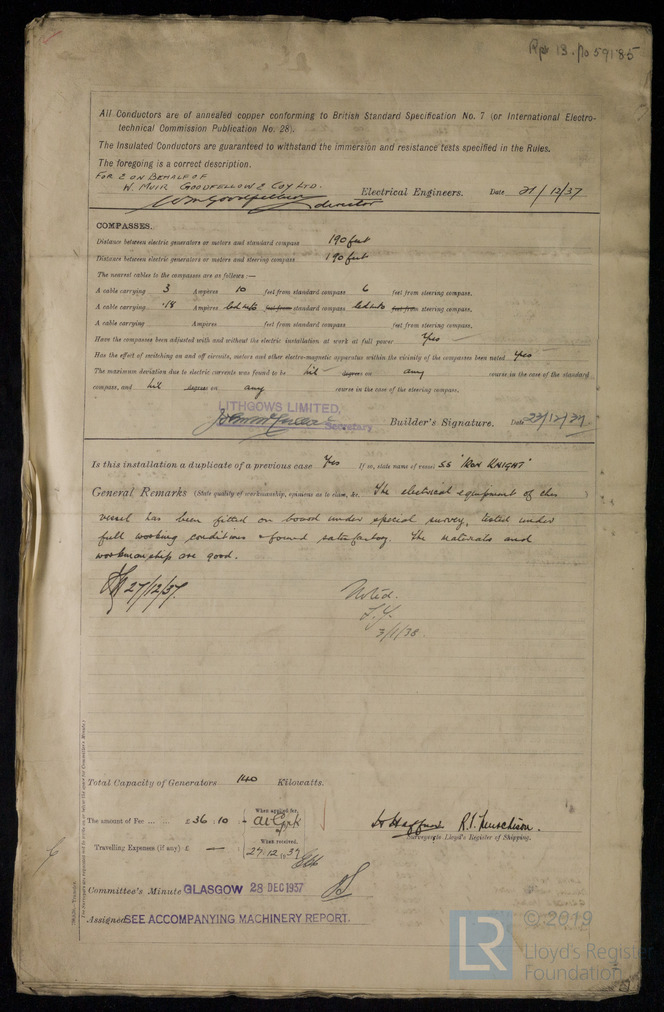 Rpt 13. No 59185
All Conductors are of annealed copper conforming to British Standard Specification No. 7 (or International Electro-
technical Commission Publication No. 28).
The Insulated Conductors are guaranteed to withstand the immersion and resistance tests specified in the Rules.
The foregoing is a correct description.
FOR & ON BEHALF OF
W. MUIR GOODFELLOW & COY LTD.
Wm Goodfellow director Electrical Engineers. Date 21/12/37
COMPASSES.
Distance between electric generators or motors and standard compass 190 feet
Distance between electric generators or motors and steering compass 190 feet
The nearest cables to the compasses are as follows :—
A cable carrying 3 Ampères 10 feet from standard compass 6 feet from steering compass.
A cable carrying .18 Ampères led into feet from standard compass led into feet from steering compass.
A cable carrying Ampères feet from standard compass feet from steering compass.
Have the compasses been adjusted with and without the electric installation at work at full power Yes
Has the effect of switching on and off circuits, motors and other electro-magnetic apparatus within the vicinity of the compasses been noted Yes
The maximum deviation due to electric currents was found to be Nil degrees on any course in the case of the standard
compass, and Nil degrees on any course in the case of the steering compass.
LITHGOWS LIMITED,
Secretary Builder's Signature. Date 23/12/37
Is this installation a duplicate of a previous case Yes If so, state name of vessel SS "IRON KNIGHT"
General Remarks (State quality of workmanship, opinions as to class, &c. The electrical equipment of this )
vessel has been fitted on board under special survey, tested under
full working conditions & found satisfactory. The materials and
workmanship are good.
27/12/37.
Noted.
3/1/38
Total Capacity of Generators 140 Kilowatts.
The amount of Fee ... ... £36 : 10 : When applied for,
Travelling Expenses (if any) £ — : When received,
27.12.1937
R. J. Murchison.
Surveyors to Lloyd's Register of Shipping.
Committee's Minute GLASGOW 28 DEC 1937
Assigned SEE ACCOMPANYING MACHINERY REPORT.
LR © 2019
Lloyd's Register
Foundation